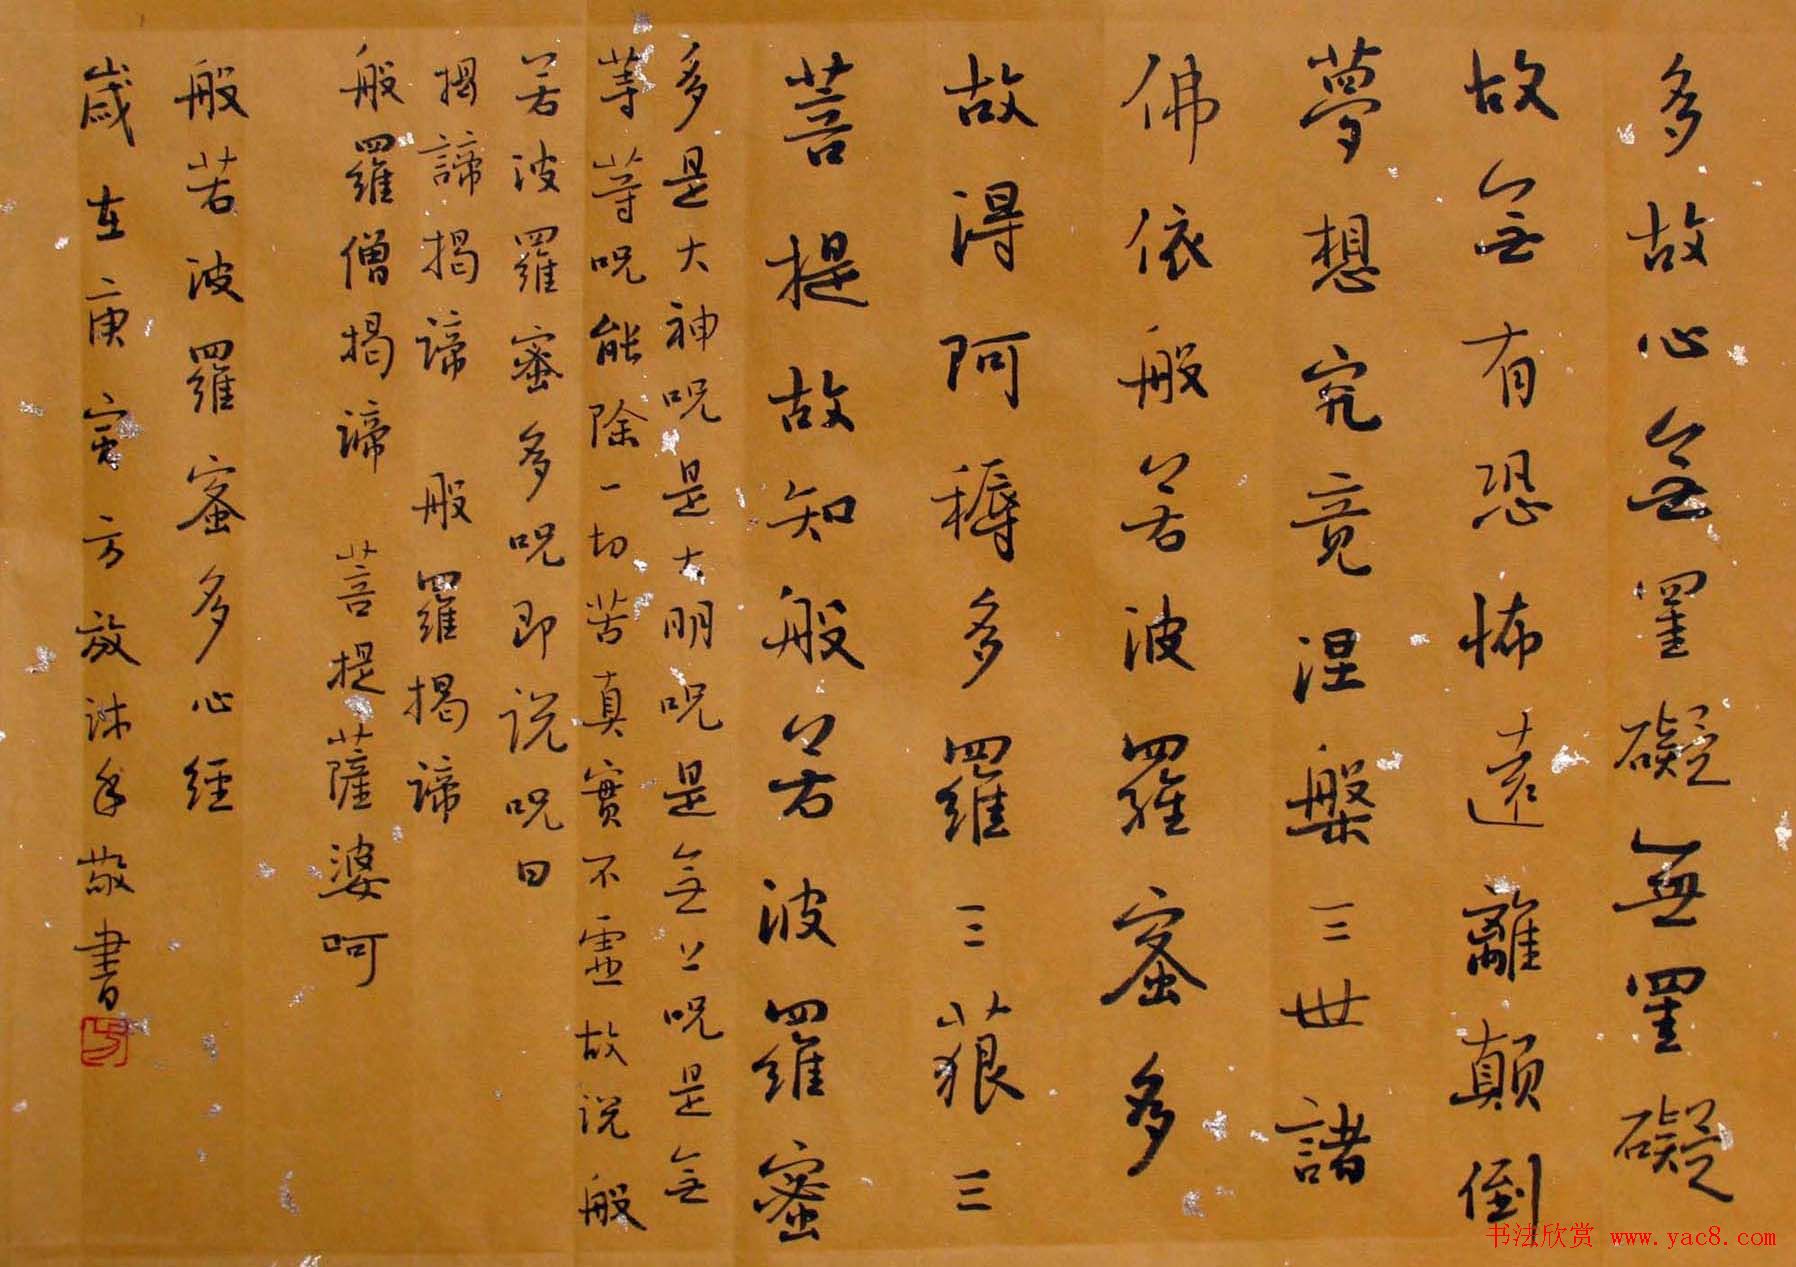 多故心無罣礙無罣礙
故無有恐怖遠離顛倒
夢想究竟涅槃三世諸
佛依般若波羅蜜多
故得阿耨多羅三藐三
菩提故知般若波羅蜜
多是大神呪是大明呪是無上呪是無
等等呪能除一切苦真實不虛故说般
若波羅蜜多呪即说呪曰
揭諦揭諦 般羅揭諦
般羅僧揭諦 菩提薩婆呵
般若波羅蜜多心經
歲在庚寅方放沐手敬書
书法欣赏 www.yac8.com